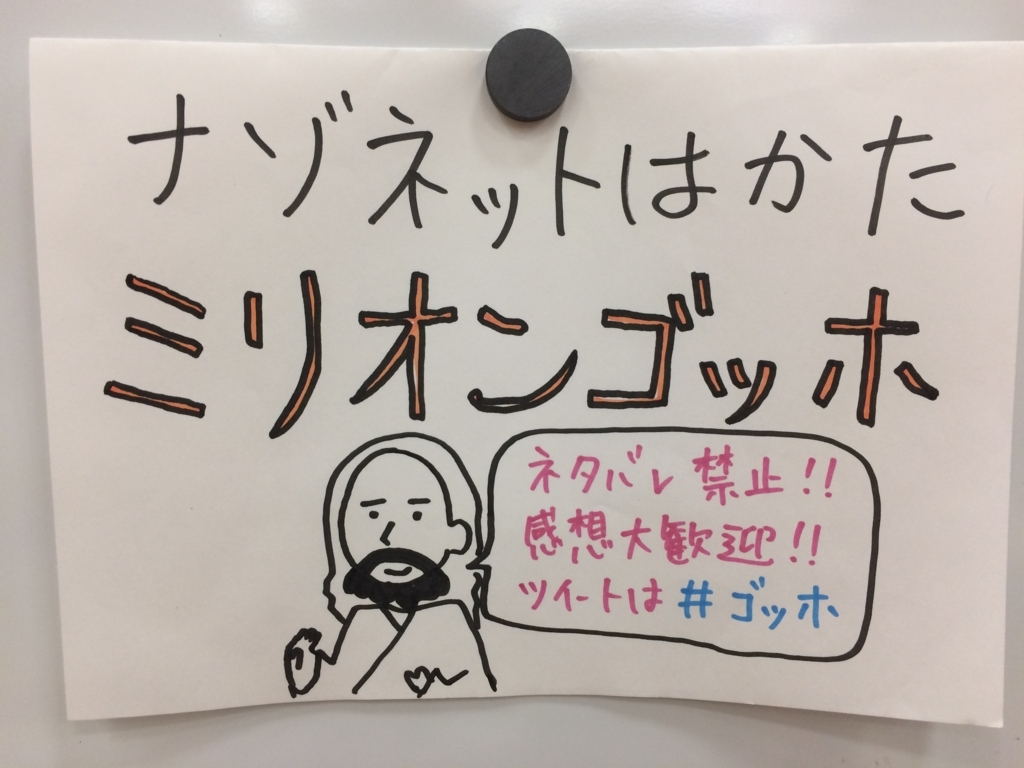 ナゾネットはかた
ミリオンゴッホ
ネタバレ禁止!!
感想大歓迎!!
ツイートは#ゴッホ